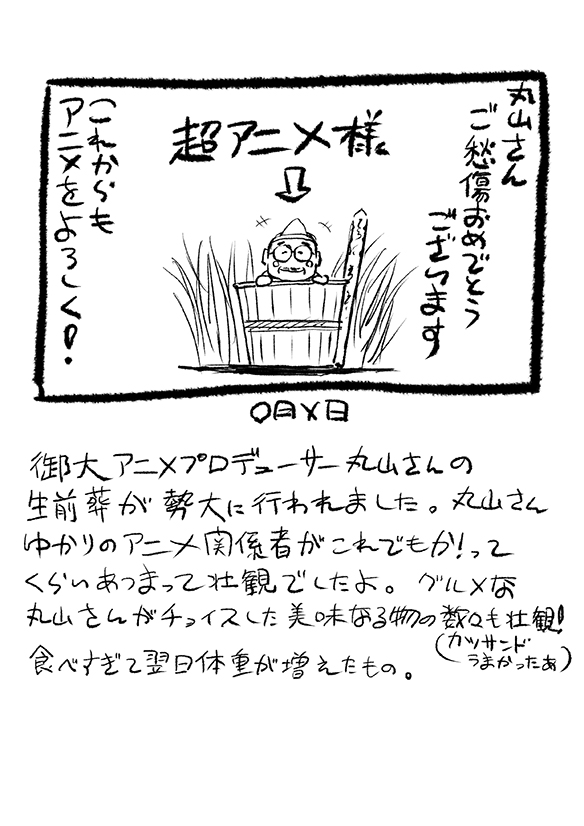 丸山さん
ご愁傷おめでとう
ございます
超アニメ様
これからも
アニメをよろしく!
〇月×日
御大アニメプロデューサー丸山さんの
生前葬が勢大に行われました。丸山さん
ゆかりのアニメ関係者がこれでもか!って
くらいあつまって壮観でしたよ。グルメな
丸山さんがチョイスした美味なる物の数々も壮観!
食べすぎて翌日体重が増えたもの。
(カツサンド
うまかったぁ)